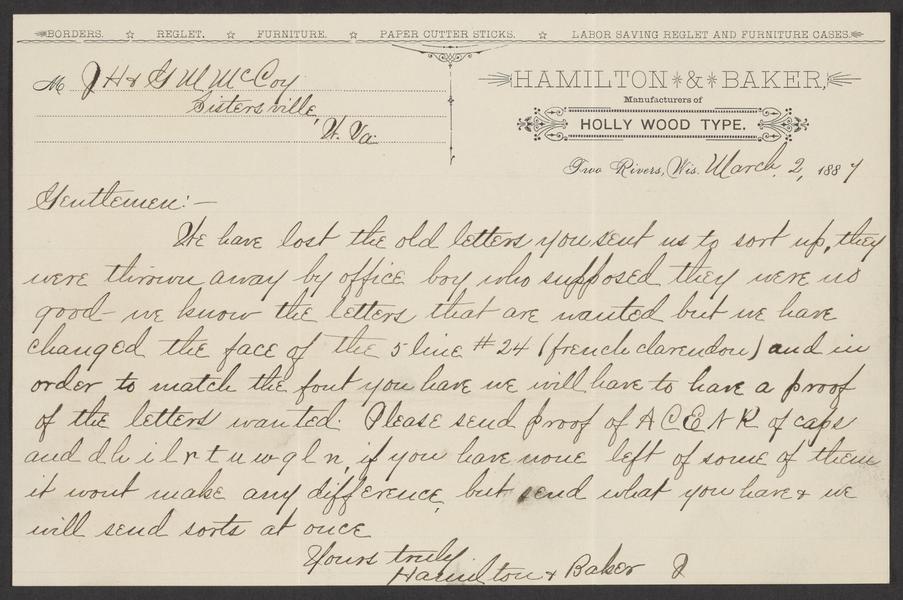 BORDERS. ☆ REGLET. ☆ FURNITURE. ☆ PAPER CUTTER STICKS. ☆ LABOR SAVING REGLET AND FURNITURE CASES.
HAMILTON * & * BAKER,
Manufacturers of
HOLLY WOOD TYPE.
M J H & G M McCoy
Sistersville,
W. Va.
Two Rivers, Wis. March, 2, 1887
Gentlemen:—
We have lost the old letters you sent us to sort up, they
were thrown away by office boy who supposed they were no
good - we know the letters that are wanted but we have
changed the face of the 5 line #24 (french clarendon) and in
order to match the font you have we will have to have a proof
of the letters wanted. Please send proof of A C E N R of caps
and d h i l r t u w g l n, if you have none left of some of them
it wont make any difference, but send what you have & we
will send sorts at once
Yours truly
Hamilton & Baker J